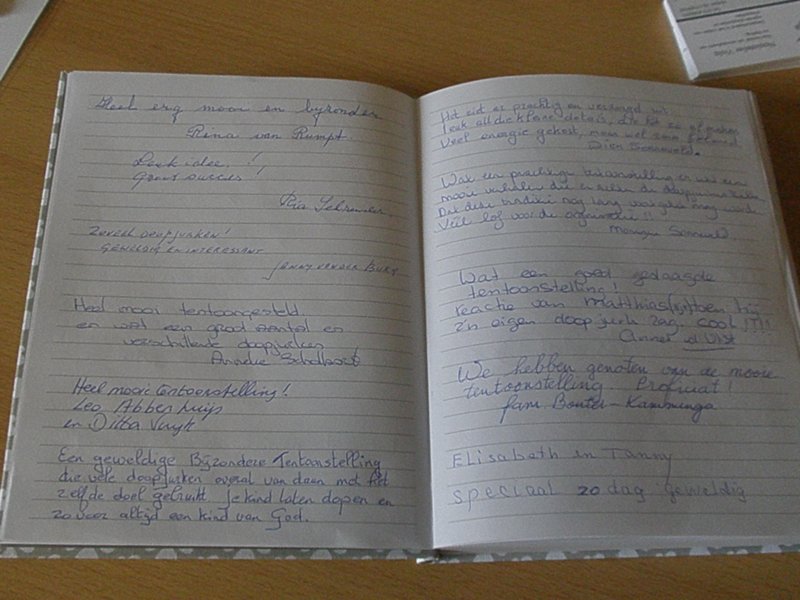 Heel erg mooi en bijzonder
Rina van Rumpt.
Leuk idee. !
Groot succes
Ria
Zoveel doopjurken!
GEWELDIG EN INTERESSANT
JANNY VAN DER BURG
Heel mooi tentoongesteld
en wat een groot aantal en
verschillende doopjurken
Anneke Scholbost
Heel mooie tentoonstelling!
Leo Abbes Muijs
en Dikba Vuyk
Een geweldige Bijzondere Tentoonstelling
die vele doopjurken overal van daan met het
zelfde doel gebruikt. Je kind laten dopen en
zo voor altijd een kind van God.
Het ziet er prachtig en verzorgd uit.
Leuk all die kleine details, die het zo af maken
Veel energie gekost, maar wel
Dien Sonneveld.
Wat een prachtige tentoonstelling en wat een
mooie verhalen die er achter de doopjurken
Dat deze traditie nog lang voortgezet mag worden
Veel lof voor de organisatie!!
Monique Sonneveld
Wat een goed geslaagde
tentoonstelling!
reactie van Matthias toen hij
z'n eigen doopjurk zag. COOL !!!!
Annet
We hebben genoten van de mooie
tentoonstelling. Proficiat!
fam. Bouter-Kamminga
Elisabeth en Tanny
speciaal zo dag geweldig